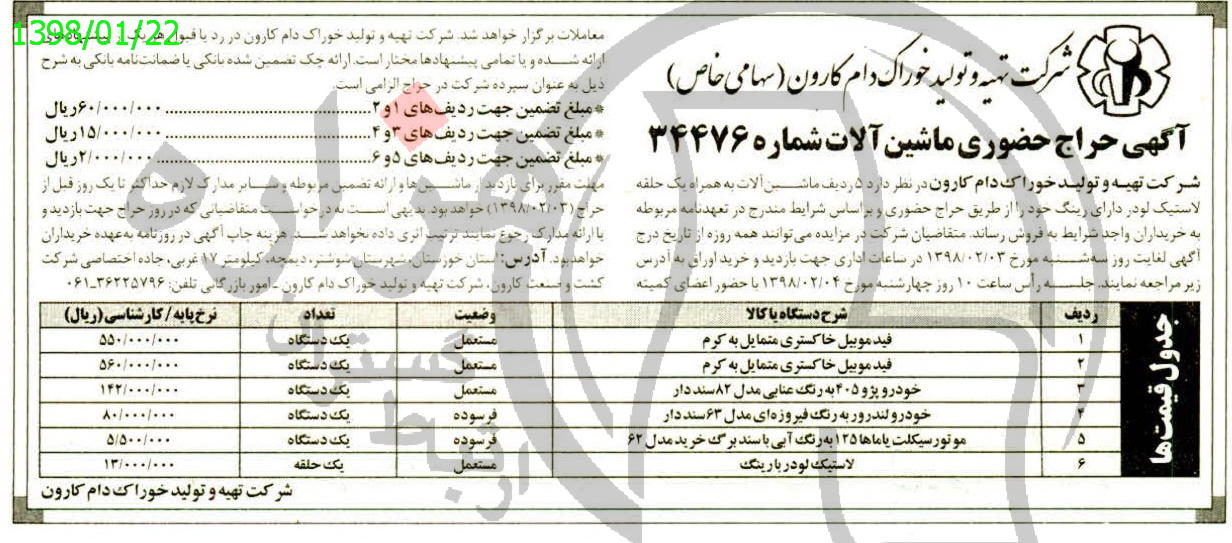 1398/01/22
شرکت تهیه و تولید خوراک دام کارون (سهامی خاص)
آگهی حراج حضوری ماشین آلات شماره ۳۴۴۷۶
شرکت تهیه و تولید خوراک دام کارون در نظر دارد ۵ ردیف ماشین آلات به همراه یک حلقه
لاستیک لودر دارای رینگ خود را از طریق حراج حضوری و براساس شرایط مندرج در تعهدنامه مربوطه
به خریداران واجد شرایط به فروش رساند. متقاضیان شرکت در مزایده می‌توانند همه روزه از تاریخ درج
آگهی لغایت روز سه‌شنبه مورخ ۱۳۹۸/۰۲/۰۳ در ساعات اداری جهت بازدید و خرید اوراق به آدرس
زیر مراجعه نمایند. جلسه رأس ساعت ۱۰ روز چهارشنبه مورخ ۱۳۹۸/۰۲/۰۴ با حضور اعضای کمیته
معاملات برگزار خواهد شد. شرکت تهیه و تولید خوراک دام کارون در رد یا قبول هر یک از پیشنهادهای
ارائه شده و یا تمامی پیشنهادها مختار است. ارائه چک تضمین شده بانکی یا ضمانت‌نامه بانکی به شرح
ذیل به عنوان سپرده شرکت در حراج الزامی است.
*مبلغ تضمین جهت ردیف‌های ۱ و ۲ ........ ۶۰/۰۰۰/۰۰۰ ریال
*مبلغ تضمین جهت ردیف‌های ۳ و ۴ ........ ۱۵/۰۰۰/۰۰۰ ریال
*مبلغ تضمین جهت ردیف‌های ۵ و ۶ ........ ۲/۰۰۰/۰۰۰ ریال
مهلت مقرر برای بازدید از ماشین‌ها و ارائه تضمین مربوطه و سایر مدارک لازم حداکثر تا یک روز قبل از
حراج (۱۳۹۸/۰۲/۰۳) خواهد بود. بدیهی است به درخواست متقاضیانی که در روز حراج جهت بازدید و
یا ارائه مدارک رجوع نمایند ترتیب اثری داده نخواهد شد. هزینه چاپ آگهی در روزنامه به‌عهده خریداران
خواهد بود. آدرس: استان خوزستان، شهرستان شوشتر، دیمچه، کیلومتر ۱۷ غربی، جاده اختصاصی شرکت
کشت و صنعت کارون، شرکت تهیه و تولید خوراک دام کارون ـ امور بازرگانی تلفن: ۳۶۲۲۵۷۹۶ـ۰۶۱
جدول قیمت‌ها
ردیف شرح دستگاه یا کالا وضعیت تعداد نرخ پایه / کارشناسی (ریال)
۱ فیدموبیل خاکستری متمایل به کرم مستعمل یک دستگاه ۵۵۰/۰۰۰/۰۰۰
۲ فیدموبیل خاکستری متمایل به کرم مستعمل یک دستگاه ۵۶۰/۰۰۰/۰۰۰
۳ خودرو پژو ۴۰۵ به رنگ عنابی مدل ۸۲ سند دار مستعمل یک دستگاه ۱۴۲/۰۰۰/۰۰۰
۴ خودرو لندرور به رنگ فیروزه‌ای مدل ۶۳ سند دار فرسوده یک دستگاه ۸۰/۰۰۰/۰۰۰
۵ موتورسیکلت یاماها ۱۲۵ به رنگ آبی با سند برگ خرید مدل ۶۲ فرسوده یک دستگاه ۵/۵۰۰/۰۰۰
۶ لاستیک لودر با رینگ مستعمل یک حلقه ۱۳/۰۰۰/۰۰۰
شرکت تهیه و تولید خوراک دام کارون